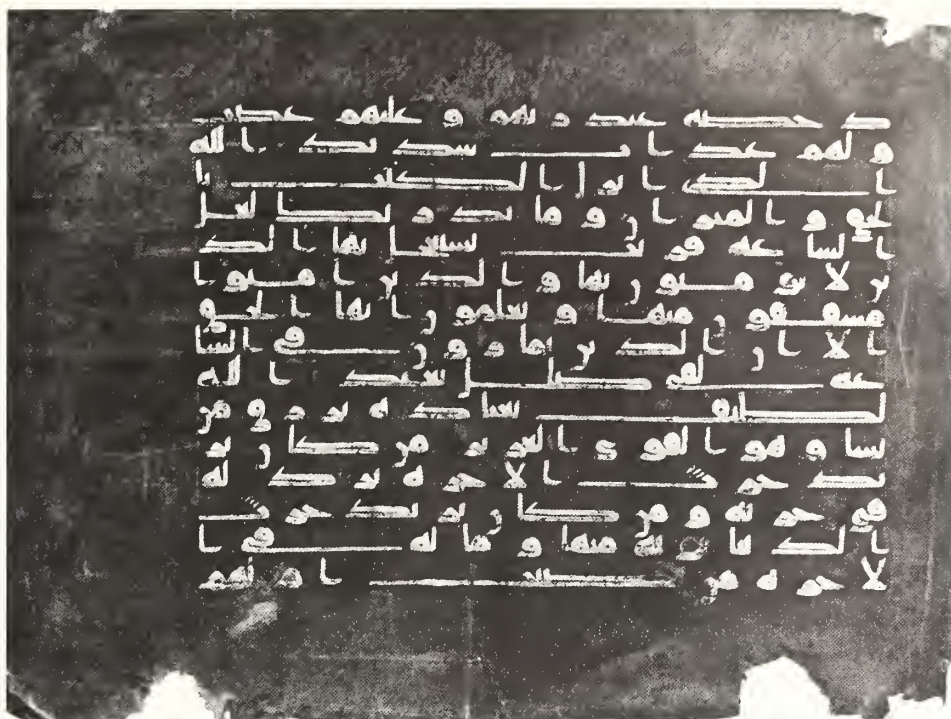 حضة عند ربهم و عليهم غضب
و لهم عذاب شديد الله
الذي انزل الكتب با
لحق و الميزان و ما يدريك لعل
الساعة قريب يستعجل بها الذ
ين لا يؤمنون بها و الذين امنوا
مشفقون منها و يعلمون انها الحق
الا ان الذين يمارون في السا
عة لفي ضلل بعيد الله
لطيف بعباده يرزق من
يشا و هو القوي العزيز من كان ير
يد حرث الاخرة نزد له
في حرثه و من كان يريد حرث
الدنيا نؤته منها و ما له في ا
لاخرة من نصيب ام لهم